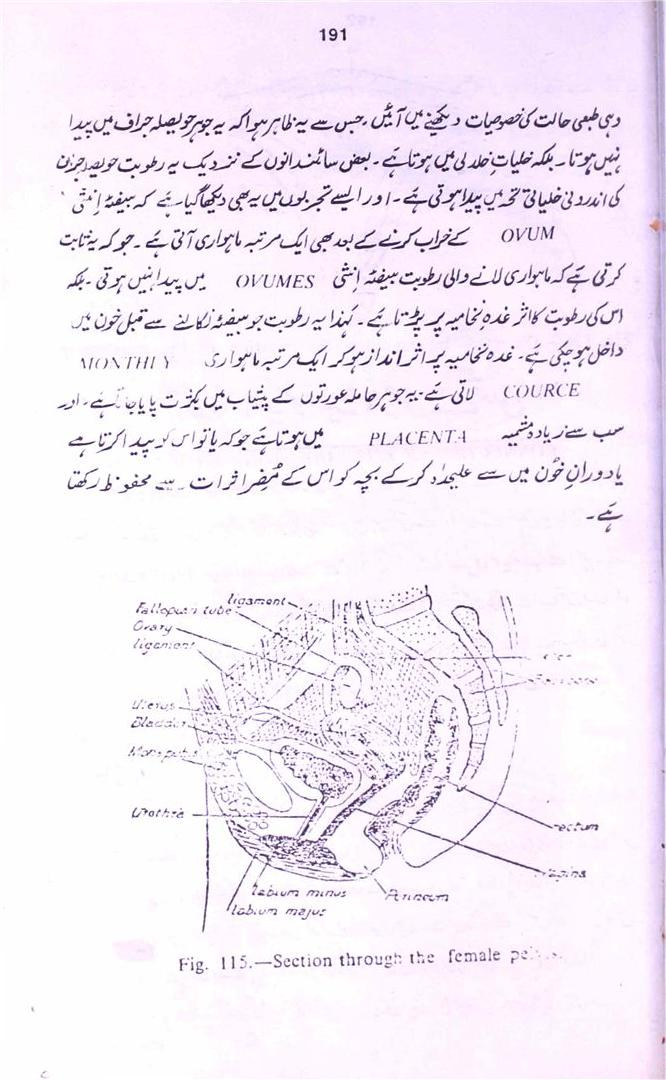 191
وہی طبعی حالت کی خصوصیات دیکھنے میں آئیں۔ جس سے یہ ظاہر ہوا کہ یہ جوہر حویصلہ جراف میں پیدا
نہیں ہوتا۔ بلکہ خلیات خللی میں ہوتا ہے۔ بعض سائنسدانوں کے نزدیک یہ رطوبت حویصلہ جراف
کی اندرونی خلیاتی تحہ میں پیدا ہوتی ہے۔ اور ایسے تجربوں میں یہ بھی دیکھا گیا ہے کہ بیضۂ اِنثی
OVUM کے خراب کرنے کے بعد بھی ایک مرتبہ ماہواری آتی ہے۔ جو کہ یہ ثابت
کرتی ہے کہ ماہواری لانے والی رطوبت بیضۂ اِنثی OVUMES میں پیدا نہیں ہوتی۔ بلکہ
اس کی رطوبت کا اثر غدہ نخامیہ پر پڑتا ہے۔ لہٰذا یہ رطوبت جو بیضۂ نکالنے سے قبل خون میں
داخل ہو چکی ہے۔ غدہ نخامیہ پر اثر انداز ہو کر ایک مرتبہ ماہواری MONTHLY
COURCE لاتی ہے۔ یہ جوہر حاملہ عورتوں کے پیشاب میں بکثرت پایا جاتا ہے۔ اور
سب سے زیادہ مشیمہ PLACENTA میں ہوتا ہے جو کہ یا تو اس کو پیدا کرتا ہے
یا دورانِ خُون میں سے علیحدہ کر کے بچہ کو اس کے مُضر اثرات سے محفوظ رکھتا
ہے۔
ligament
Fallopian tube
Ovary
ligament
Uterus
Bladder
Mons pubis
Urethra
rectum
vagina
labium minus
Perineum
labium majus
Fig. 115.—Section through the female